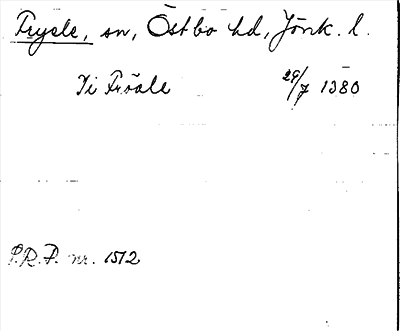 Fryele, sn, Östbo hd, Jönk. l.
Ji Fröale 29/7 1380
P.R.P. nr. 1512